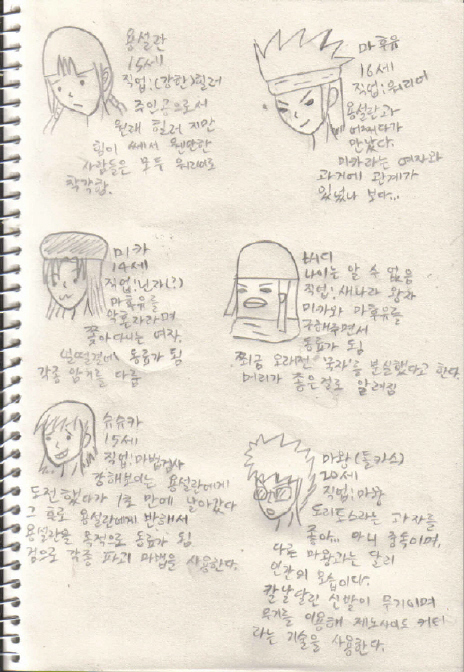 용설란
15세
직업:(강한)힐러
주인공으로서
원래 힐러 지만
힘이 쎄서 웬만한
사람들은 모두 워리어로
착각함.
마휴유
16세
직업:워리어
용설란과
어쩌다가
만났다.
미카라는 여자와
과거에 관계가
있었나 보다...
미카
14세
직업:닌자(?)
마휴유를
악혼자라며
쫓아다니는 여자.
얼떨결에 동료가 됨
각종 암기를 다룸
버디
나이는 알 수 없음
직업:새나라 왕자
미카와 마휴유를
구해주면서
동료가 됨
쬐금 오래전 "국자"를 분실했다고 한다.
머리가 좋은걸로 알려짐
슈슈카
15세
직업:마법검사
강해보이는 용설란에게
도전했다가 1초 만에 날아갔다
그 후로 용설란에게 반해서
용설란을 목적으로 동료가 됨
검으로 각종 파괴 마법을 사용한다.
마왕(툴카스)
20세
직업:마왕
도리토스라는 과자를
좋아... 아니 중독이며,
다른 마왕과는 달리
인간의 모습이다.
칼날달린 신발이 무기이며
무기를 이용해 제노사이드 커터
라는 기술을 사용한다.